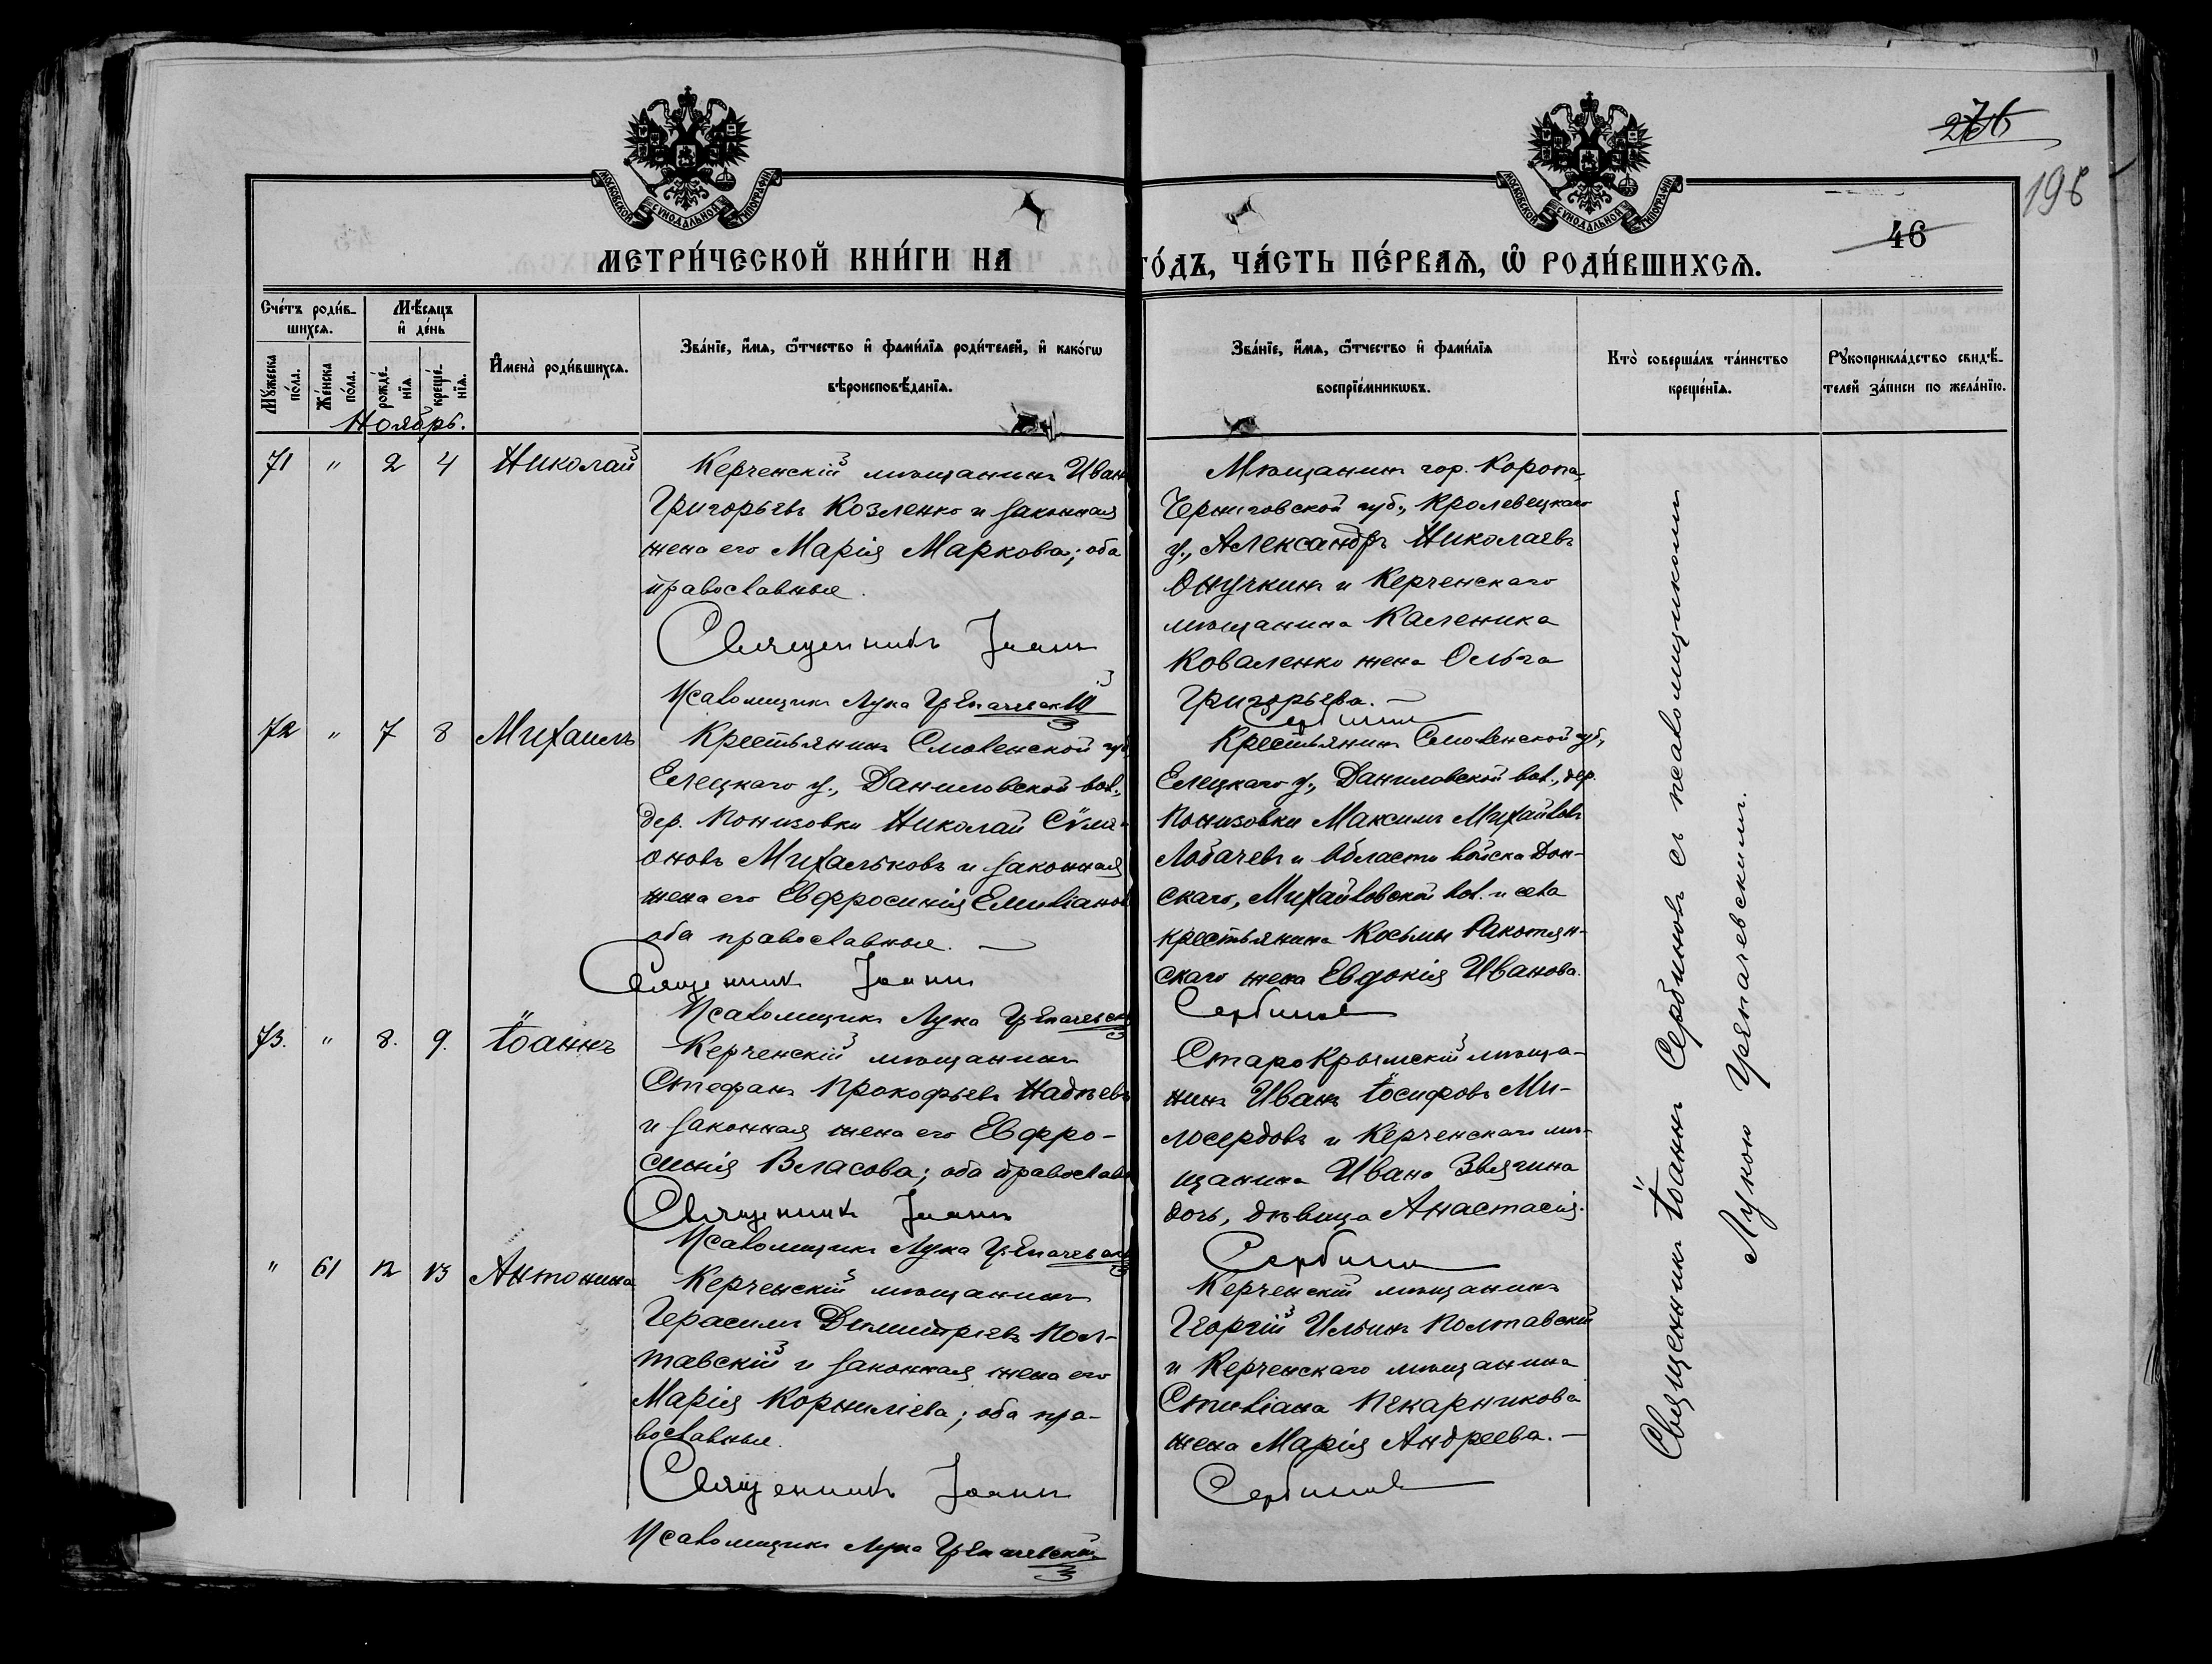 МОСКОВСКОЙ СѴНОДАЛЬНОЙ ТИПОГРАФІИ
МОСКОВСКОЙ СѴНОДАЛЬНОЙ ТИПОГРАФІИ
195
46
МЕТРИ́ЧЕСКОЙ КНИ́ГИ НА ГО́ДЪ, ЧА́СТЬ ПЕ́РВАЯ, Ѿ РОДИ́ВШИХСЯ.
Сче́тъ роди́в-
шихся.
Мѣ́сяцъ
и҆ де́нь
Мꙋ́жеска
по́ла.
Же́нска
по́ла.
рожде́-
нїя.
креще́-
нїя.
И҆мена̀ роди́вшихся.
Зва́нїе, и҆́мя, ѻ҆́тчество и҆ фами́лїя роди́телей, и҆ како́гѡ
вѣроисповѣ́данїя.
Зва́нїе, и҆́мя, ѻ҆́тчество и҆ фами́лїя
воспрїе́мникѡвъ.
Кто̀ соверша́лъ та́инство
креще́нїя.
Рꙋкоприкла́дство свидѣ́-
телей за́писи по жела́нїю.
Ноябрь.
71 " 2 4 Николай
Керченскій мѣщанинъ Иван
Григорьевъ Козленко и законная
жена его Марія Маркова; оба
православные.
Священникъ Іоаннъ
Псаломщикъ Лука
Мѣщанинъ гор. Коропа,
Черниговской губ., Кролевецкаго
у., Александръ Николаевъ
Онучкинъ и Керченскаго
мѣщанина Каленика
Коваленко жена Ольга
Григорьева. —
Сербиновъ
72 " 7 8 Михаилъ
Крестьянинъ Смоленской губ,
Елецкаго у., Даниловской вол.,
дер. Понизовки Николай Сѵме-
оновъ Михальковъ и законная
жена его Евфросинія Емиліанов
оба православные. —
Священникъ Іоаннъ
Псаломщикъ Лука
Крестьянинъ Смоленской губ.,
Елецкаго у., Даниловской вол., дер.
Понизовки Максимъ Михайловъ
Лобачевъ и Области войска Дон-
скаго, Михайловской вол. и села
крестьянина Косьмы Ракотян-
скаго жена Евдокія Иванова.
Сербиновъ
73. " 8. 9. Іоаннъ
Керченскій мѣщанинъ
Стефанъ Прокофьевъ Надѣевъ
и законная жена его Евфро-
синія Власова; оба православн
Священникъ Іоаннъ
Псаломщикъ Лука
Старокрымскій мѣща-
нинъ Иванъ Іосифовъ Ми-
лосердовъ и Керченскаго мѣ-
щанина Ивана Звягина
дочь, дѣвица Анастасія.
Сербиновъ
" 61 12 13 Антонина
Керченскій мѣщанинъ
Герасимъ Димитріевъ Пол-
тавскій и законная жена его
Марія Корниліева; оба пра-
вославные.
Священникъ Іоаннъ
Псаломщикъ Лука
Керченскій мѣщанинъ
Георгій Ильинъ Полтавскій
и Керченскаго мѣщанина
Стиліана Пекарникова
жена Марія Андреева. —
Сербиновъ
Священникъ Іоаннъ Сербиновъ съ псаломщикомъ
Лукою